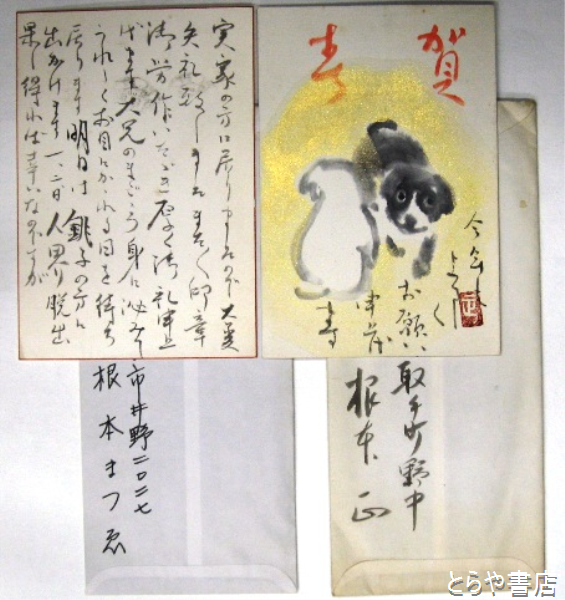 実家の方に戻り申したので大変
失礼致しましたまことに印章
御労作いただき厚く御礼申上
げます大兄のまごころ身に泌みて
うれしくお目にかゝれる日を待ち
居ります明日は銚子の方に
出かけます一、二日人界脱出
果し得れは幸いなのですが
賀春
今年も
よろしく
お願い
申上
ます
市井野二〇二七
根本まつゑ
取手町野中
根本正
とらや書店